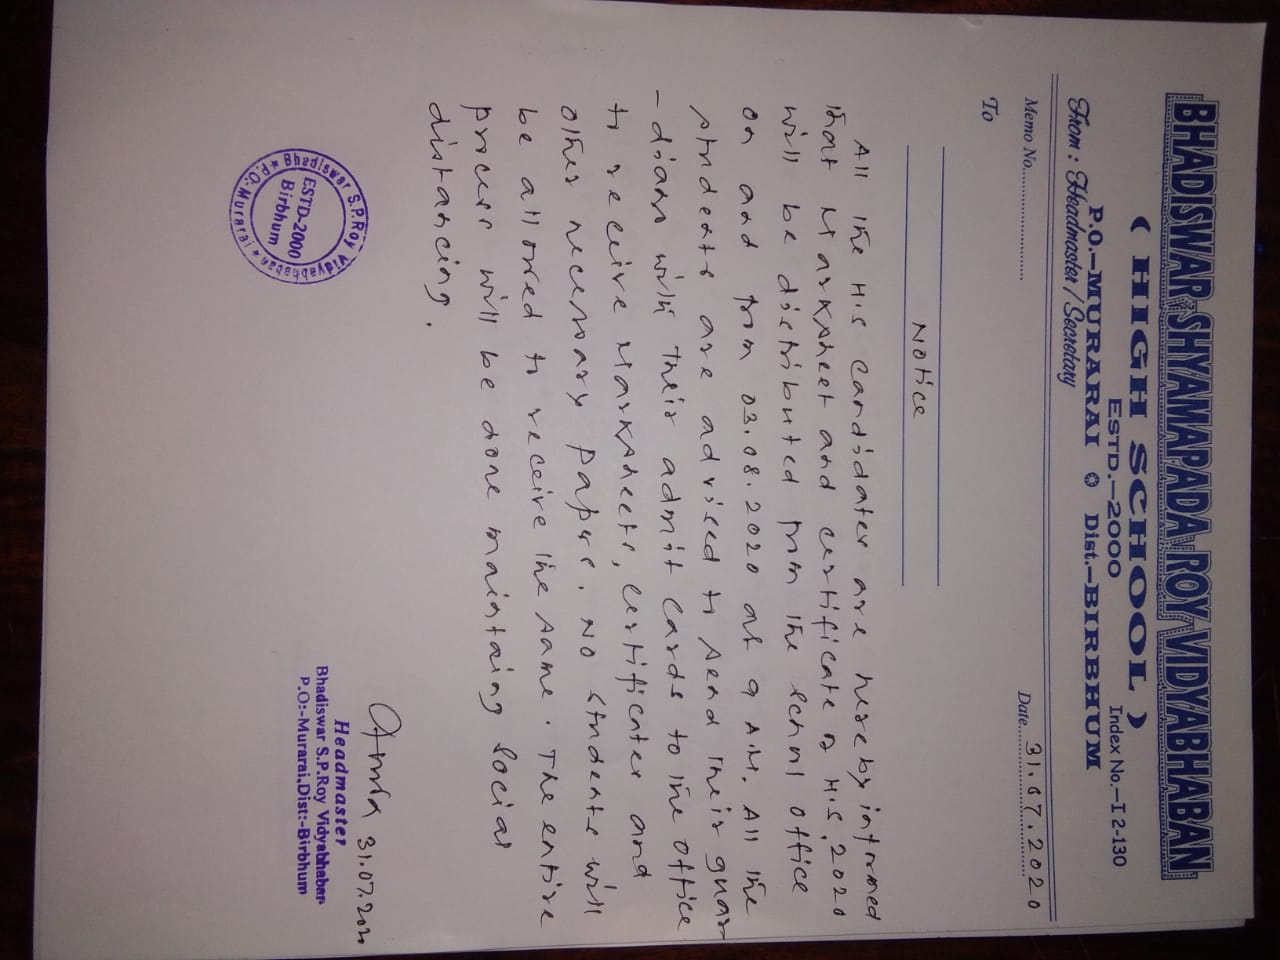 BHADISWAR SHYAMAPADA ROY VIDYABHABAN
( HIGH SCHOOL )
ESTD.–2000
Index No.–I 2-130
P.O.–MURARAI Dist.–BIRBHUM
From : Headmaster / Secretary
Memo No.
Date 31.07.2020
To
Notice
All the H.S candidates are hereby informed
that Marksheet and certificate of H.S, 2020
will be distributed from the school office
on and from 03.08.2020 at 9 A.M. All the
students are advised to send their guar
-dians with their admit cards to the office
to receive Marksheets, certificates and
other necessary papers. No students will
be allowed to receive the same. The entire
process will be done maintaing social
distancing.
31.07.2020
Headmaster
Bhadiswar S.P.Roy Vidyabhaban
P.O:-Murarai,Dist:-Birbhum
Bhadiswar S.P.Roy Vidyabhaban
P.O:Murarai
ESTD-2000
Birbhum